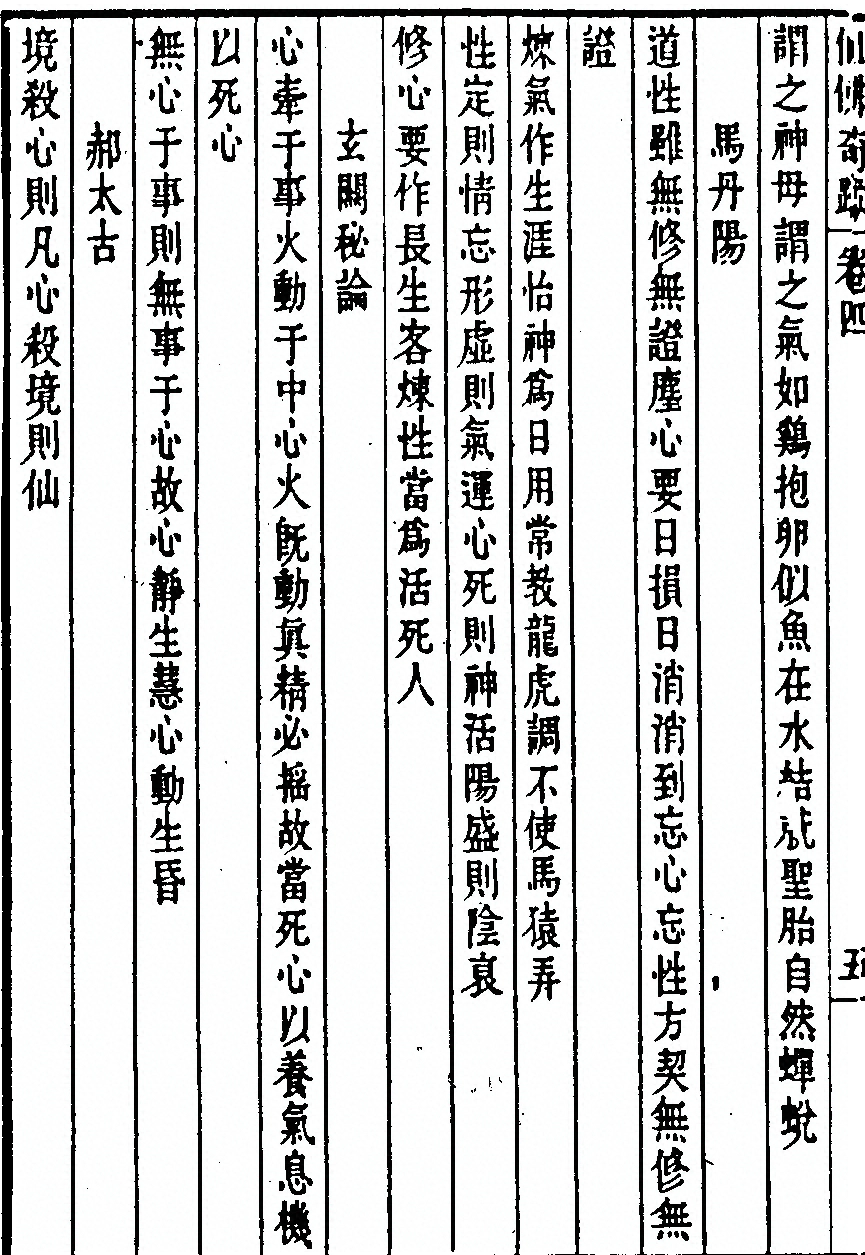 仙佛奇踪 卷四 五
謂之神母謂之氣如鷄抱卵似魚在水結就聖胎自然蟬蛻
馬丹陽
道性雖無修無證塵心要日損日消消到忘心忘性方契無修無
證
煉氣作生涯怡神爲日用常教龍虎調不使馬猿弄
性定則情忘形虛則氣運心死則神活陽盛則陰衰
修心要作長生客煉性當爲活死人
玄關秘論
心牽于事火動于中心火旣動真精必搖故當死心以養氣息機
以死心
無心于事則無事于心故心靜生慧心動生昏
郝太古
境殺心則凡心殺境則仙